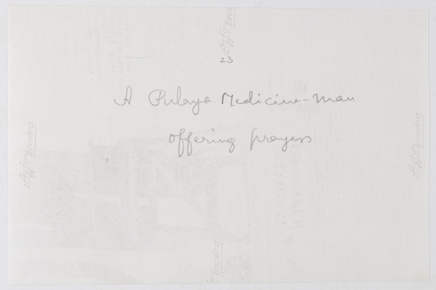 23
A Pulaya Medicine-man
offering prayers